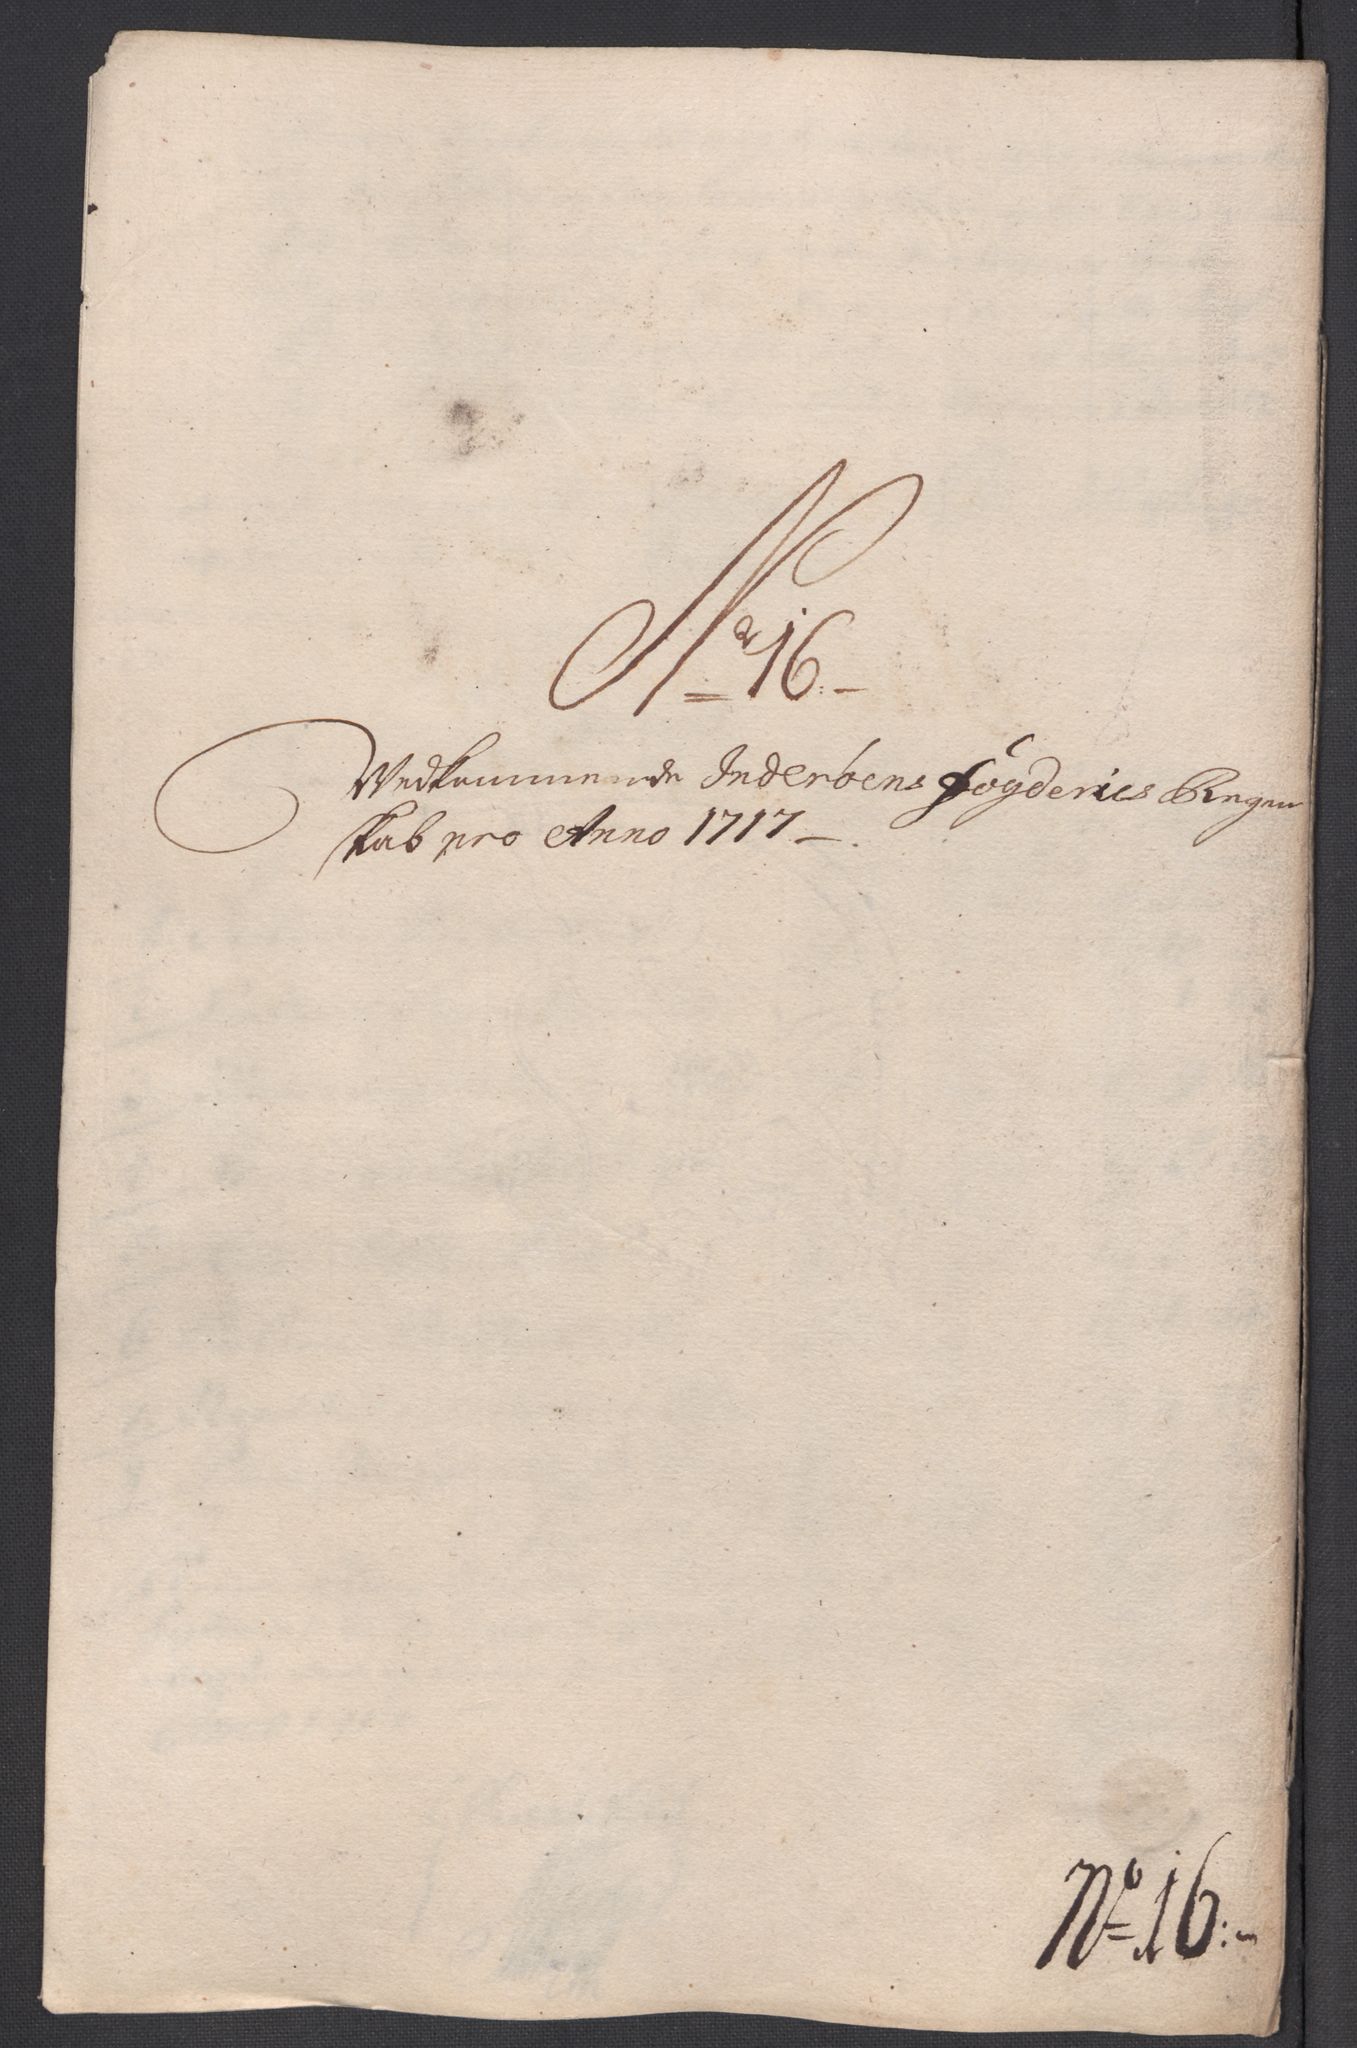 No 16:
Vedkommende Inderöens fögderies Regen
skab pro Anno 1717.
No 16: